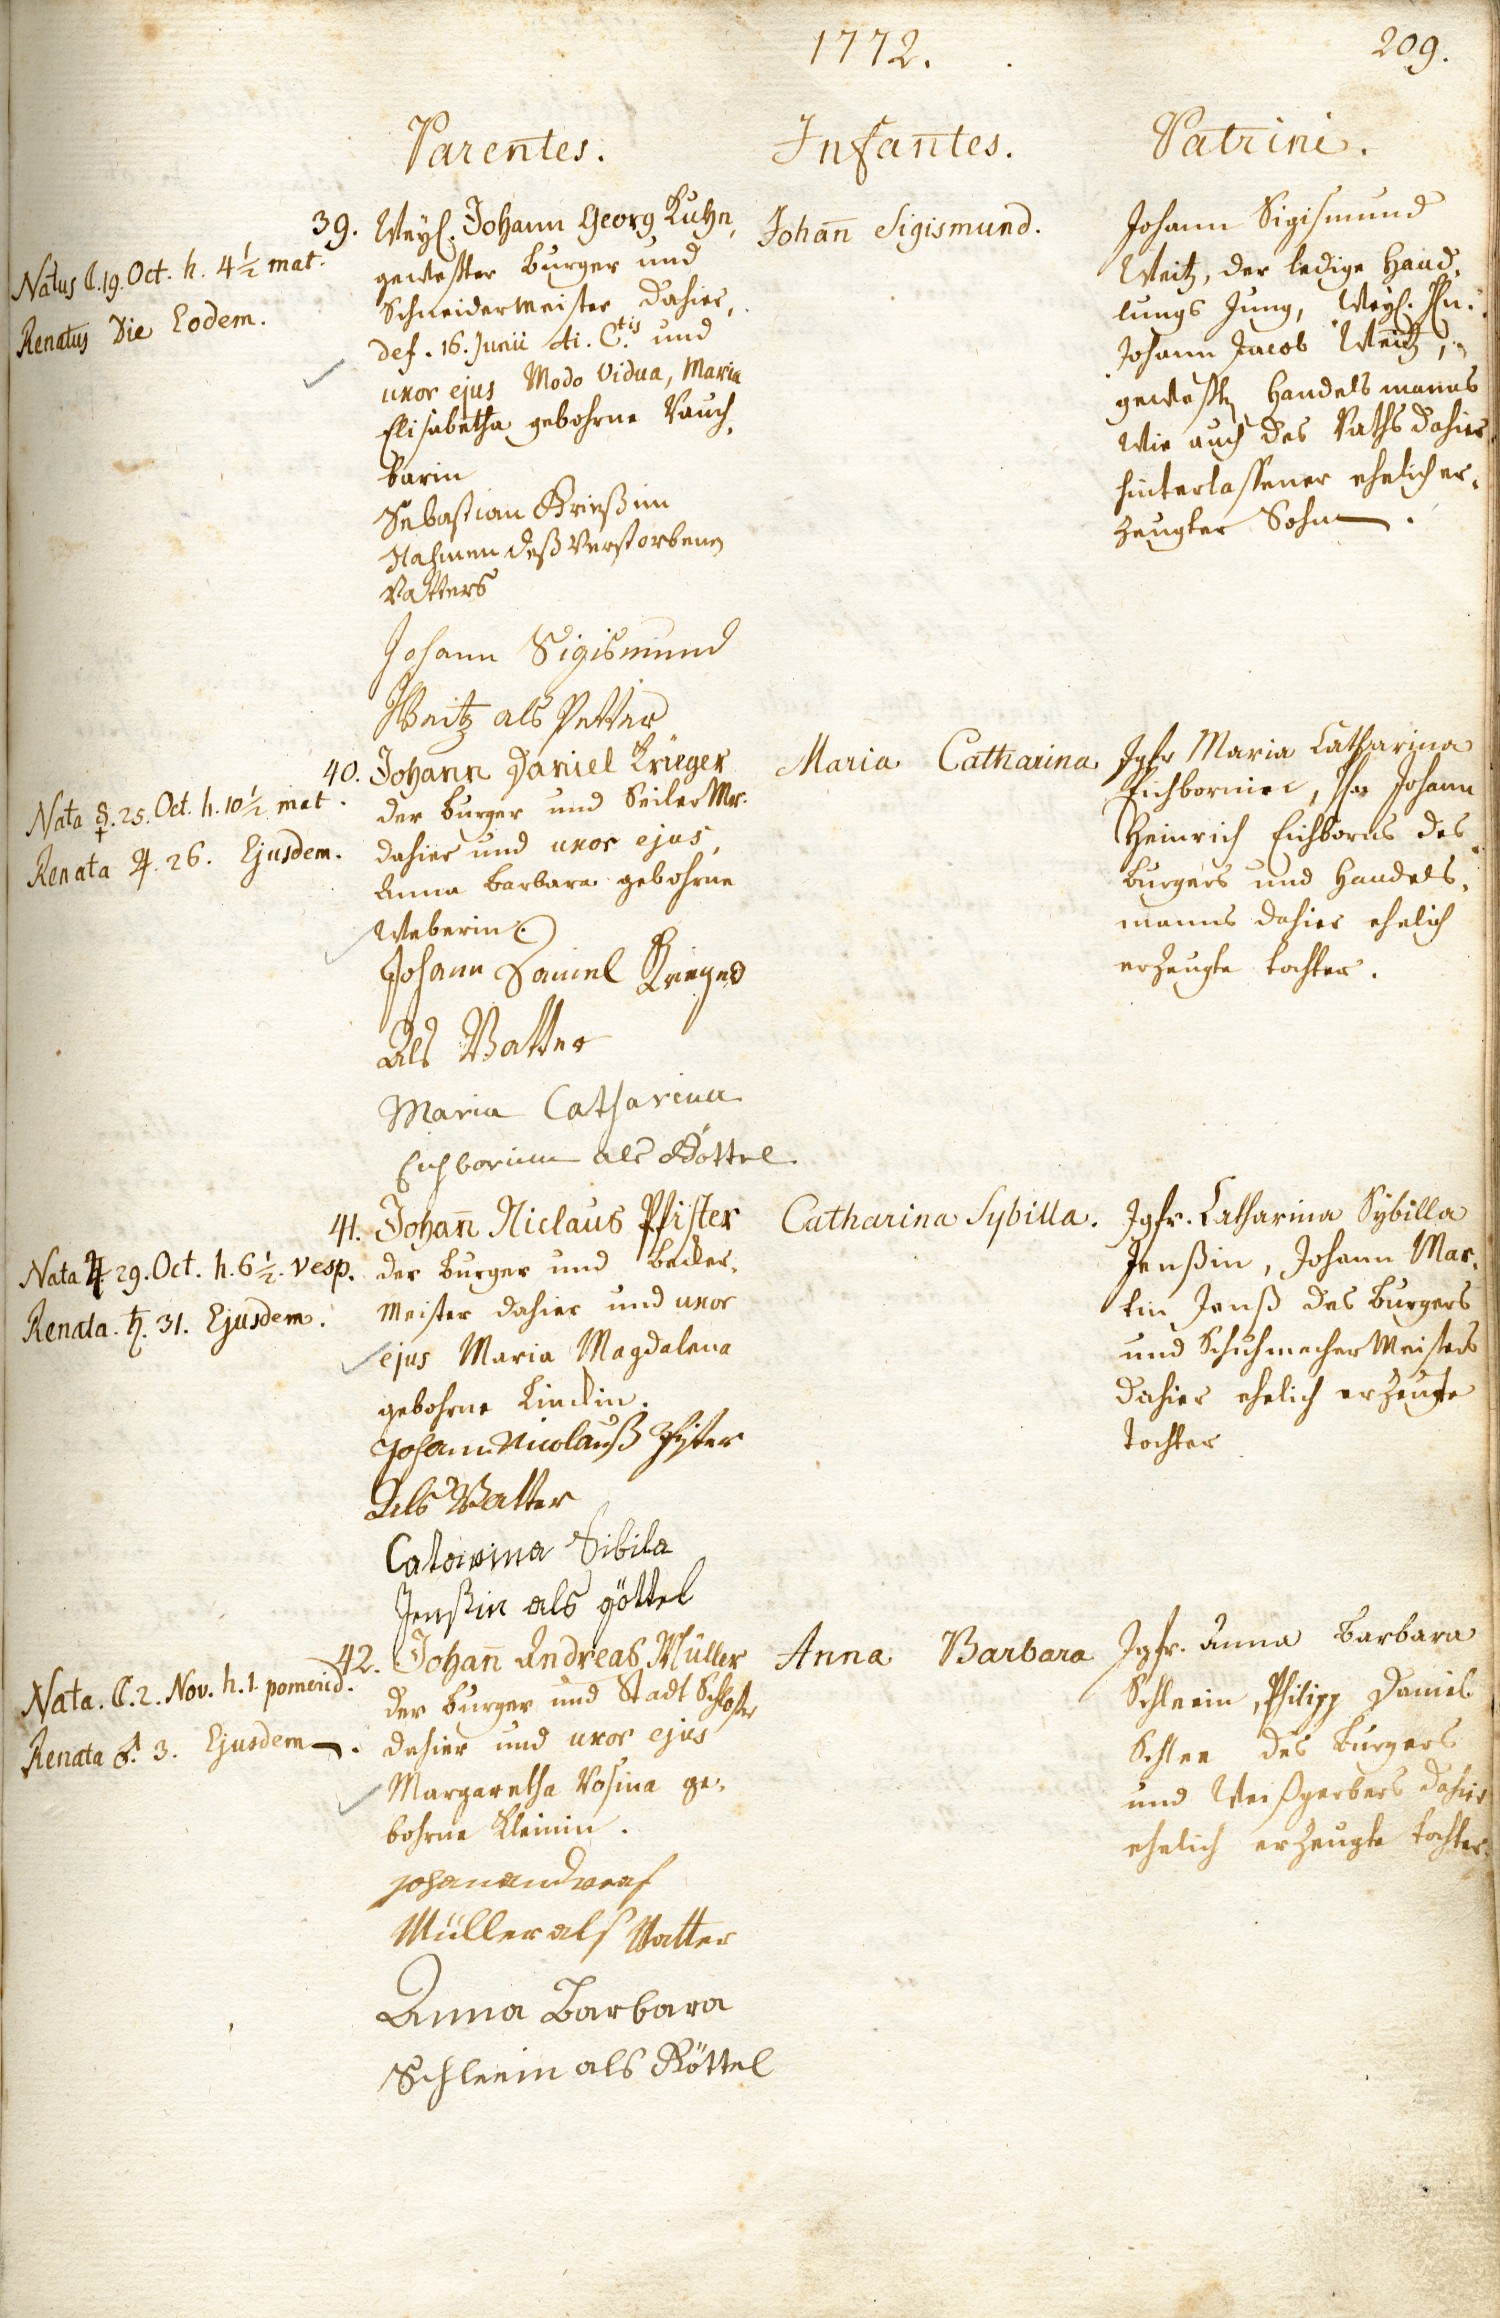 1772.
209.
Parentes.
Infantes.
Patrini.
39.
Natus ☾. 19. Oct. h. 4 ½ mat.
Renatus Die Eodem.
Weyl. Johann Georg Kuhn,
geweßter burger und
Schneidermeister dahier,
def. 16. Junii h. a. und
uxor ejus modo vidua, Maria
Elisabetha gebohrne Rauch-
barin
Sebastian Krieß im
Nahmen deß Verstorbenen
Vatters
Johann Sigismund
Weitz als Petter
Johañ Sigismund.
Johann Sigismund
Weitz, der ledige Hand-
lungs Jung, Weyl. Hn.
Johann Jacob Weitz,
geweßten Handelsmanns
wie auch des Raths dahier
hinterlassener ehelich er-
zeugter Sohn.
40.
Nata 25. Oct. h. 10 ½ mat.
Renata 26. Ejusdem.
Johann Daniel Krieger
der burger und Seiler Mr.
dahier und uxor ejus,
Anna Barbara gebohrne
Weberin.
Johann Daniel Krieger
als Vatter
Maria Catharina
Eichbornin als Göttel
Maria Catharina
Jgfr Maria Catharina
Eichbornin, Hn Johann
Heinrich Eichborns des
burgers und Handels-
manns dahier ehelich
erzeugte tochter.
41.
Nata ♃ 29. Oct. h. 6 ½. vesp.
Renata. ♄. 31. Ejusdem.
Johañ Niclaus Pfister
der burger und becker-
meister dahier und uxor
ejus Maria Magdalena
gebohrne Linckin.
Johann Nicolauß Pfister
Als Vatter
Catarina Sibila
Jenßin als göttel
Catharina Sybilla.
Jgfr. Catharina Sybilla
Jenßin, Johann Mar-
tin Jenß des burgers
und Schuhmacher Meisters
dahier ehelich erzeugte
tochter
42.
Nata. ☾. 2. Nov. h. 1 pomerid.
Renata ♂. 3. Ejusdem.
Johañ Andreas Müller
der burger und Stadt Schloßer
dahier und uxor ejus
Margaretha Rosina ge-
bohrne Kleinin.
Johan andreas
Müller als Vatter
Anna Barbara
Schleein als Göttel
Anna Barbara
Jgfr. Anna Barbara
Schleein, Philipp Daniel
Schlee des burgers
und Weißgerbers dahier
ehelich erzeugte tochter.